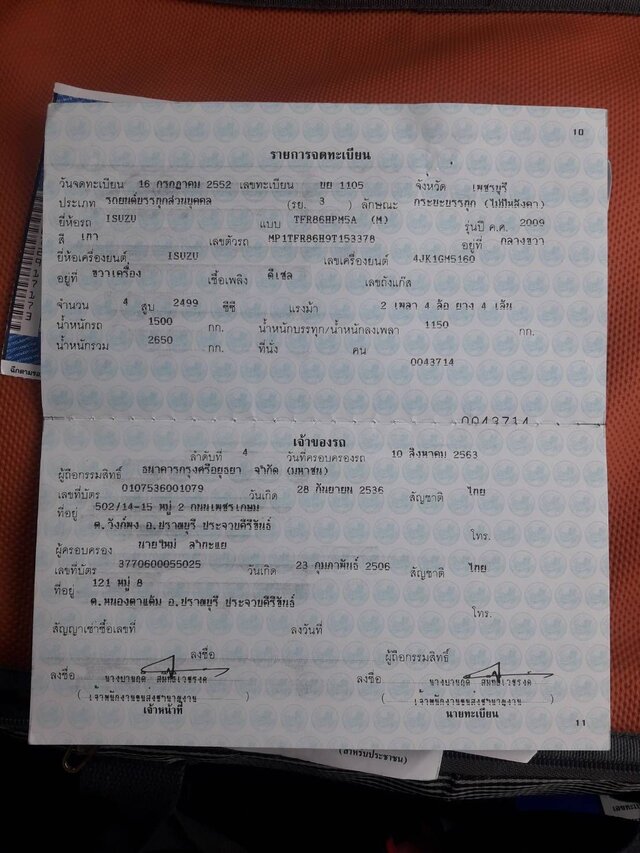 10
รายการจดทะเบียน
วันจดทะเบียน 16 กรกฎาคม 2552 เลขทะเบียน ยย 1105 จังหวัด เพชรบุรี
ประเภท รถยนต์บรรทุกส่วนบุคคล (รย. 3 ) ลักษณะ กระบะบรรทุก (ไม่มีหลังคา)
ยี่ห้อรถ ISUZU แบบ TFR86HPM5A (M) รุ่นปี ค.ศ. 2009
สี เทา เลขตัวรถ MP1TFR86H9T153378 อยู่ที่ กลางขวา
ยี่ห้อเครื่องยนต์ ISUZU เลขเครื่องยนต์ 4JK1GM5160
อยู่ที่ ขวาเครื่อง เชื้อเพลิง ดีเซล เลขถังแก๊ส
จำนวน 4 สูบ 2499 ซีซี แรงม้า 2 เพลา 4 ล้อ ยาง 4 เส้น
น้ำหนักรถ 1500 กก. น้ำหนักบรรทุก/น้ำหนักลงเพลา 1150 กก.
น้ำหนักรวม 2650 กก. ที่นั่ง คน
0043714
0043714
เจ้าของรถ
ลำดับที่ 4 วันที่ครอบครองรถ 10 สิงหาคม 2563
ผู้ถือกรรมสิทธิ์ ธนาคารกรุงศรีอยุธยา จำกัด (มหาชน)
เลขที่บัตร 0107536001079 วันเกิด 28 กันยายน 2536 สัญชาติ ไทย
ที่อยู่ 502/14-15 หมู่ 2 ถนนเพชรเกษม
ต.วังก์พง อ.ปราณบุรี ประจวบคีรีขันธ์ โทร.
ผู้ครอบครอง นายใหม่
เลขที่บัตร 3770600055025 วันเกิด 23 กุมภาพันธ์ 2506 สัญชาติ ไทย
ที่อยู่ 121 หมู่ 8
ต.หนองตาแต้ม อ.ปราณบุรี ประจวบคีรีขันธ์ โทร.
สัญญาเช่าซื้อเลขที่ ลงวันที่
ลงชื่อ ผู้ถือกรรมสิทธิ์
ลงชื่อ ลงชื่อ
(เจ้าพนักงานขนส่งชำนาญงาน) (เจ้าพนักงานขนส่งชำนาญงาน)
เจ้าหน้าที่ นายทะเบียน
11
(สำหรับประชาชน)